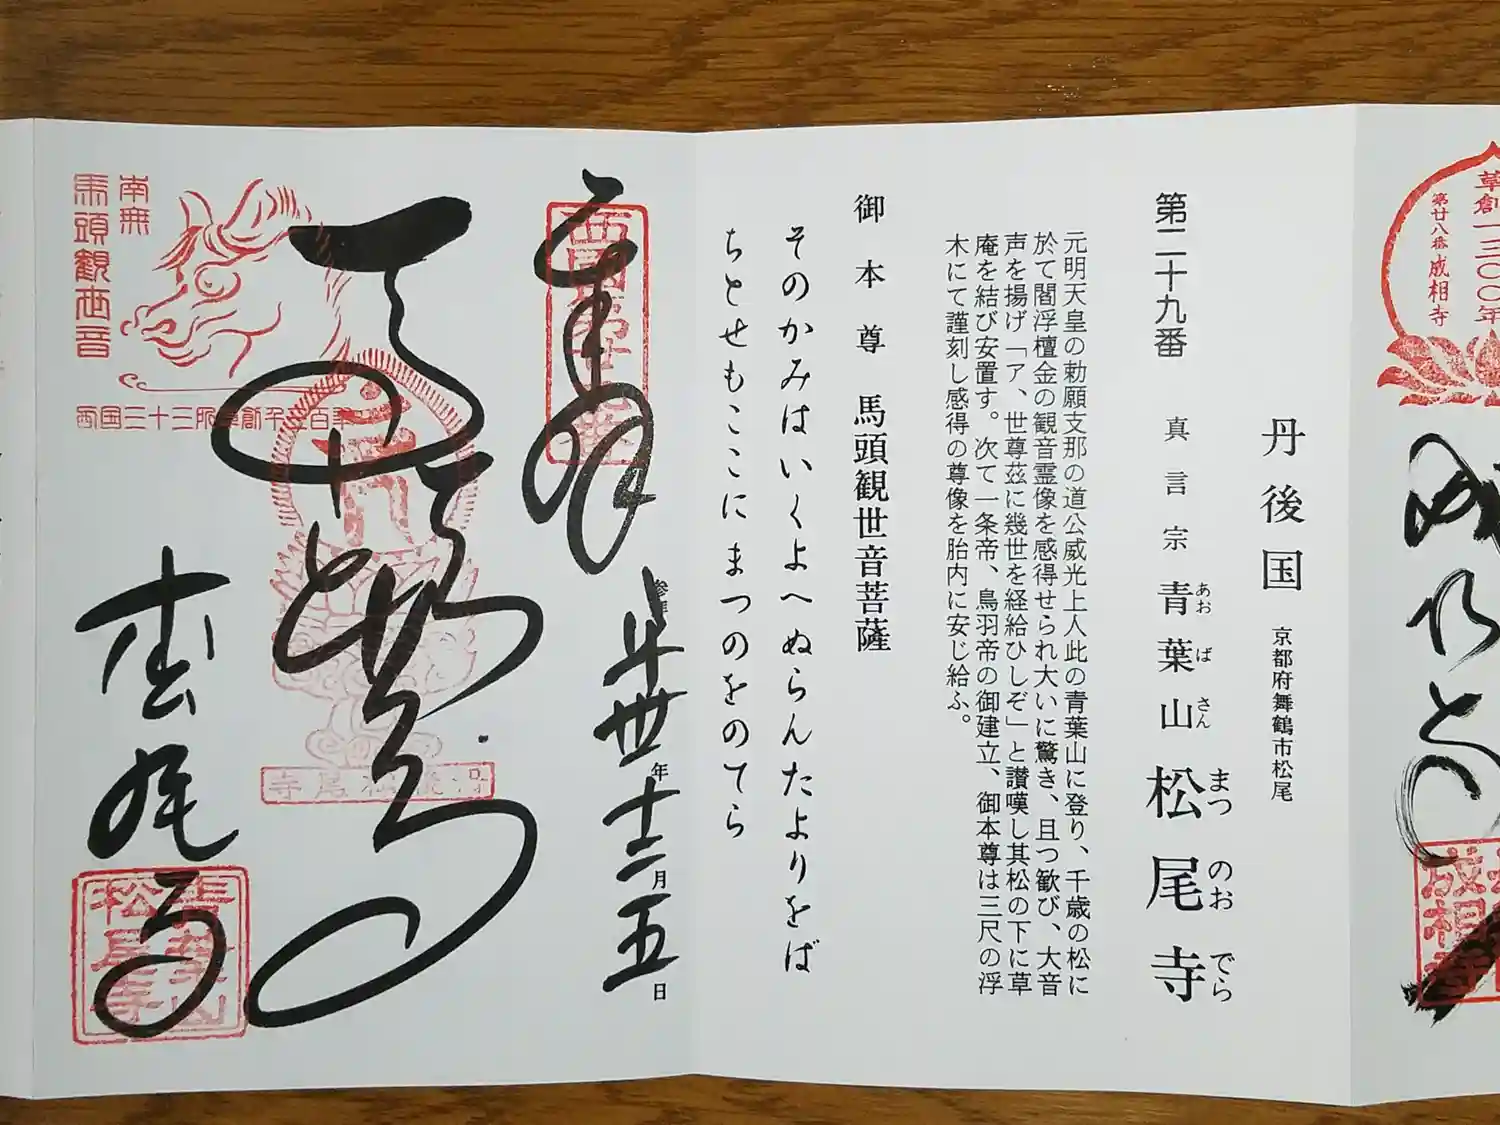 草創一三〇〇年
第廿八番成相寺
丹後国 京都府舞鶴市松尾
第二十九番 真言宗 青葉山 松尾寺
あおばさん まつのおでら
元明天皇の勅願支那の道公威光上人此の青葉山に登り、千歳の松に
於て閻浮檀金の観音霊像を感得せられ大いに驚き、且つ歓び、大音
声を揚げ「ア、世尊茲に幾世を経給ひしぞ」と讃嘆し其松の下に草
庵を結び安置す。次て一条帝、鳥羽帝の御建立、御本尊は三尺の浮
木にて謹刻し感得の尊像を胎内に安じ給ふ。
御本尊 馬頭観世音菩薩
そのかみはいくよへぬらんたよりをば
ちとせもここにまつのをのてら
奉拝
参拝 年 廿 年 十二月 五日
松尾寺
南無
馬頭観世音
西国三十三所草創千三百年
青葉山
松尾寺